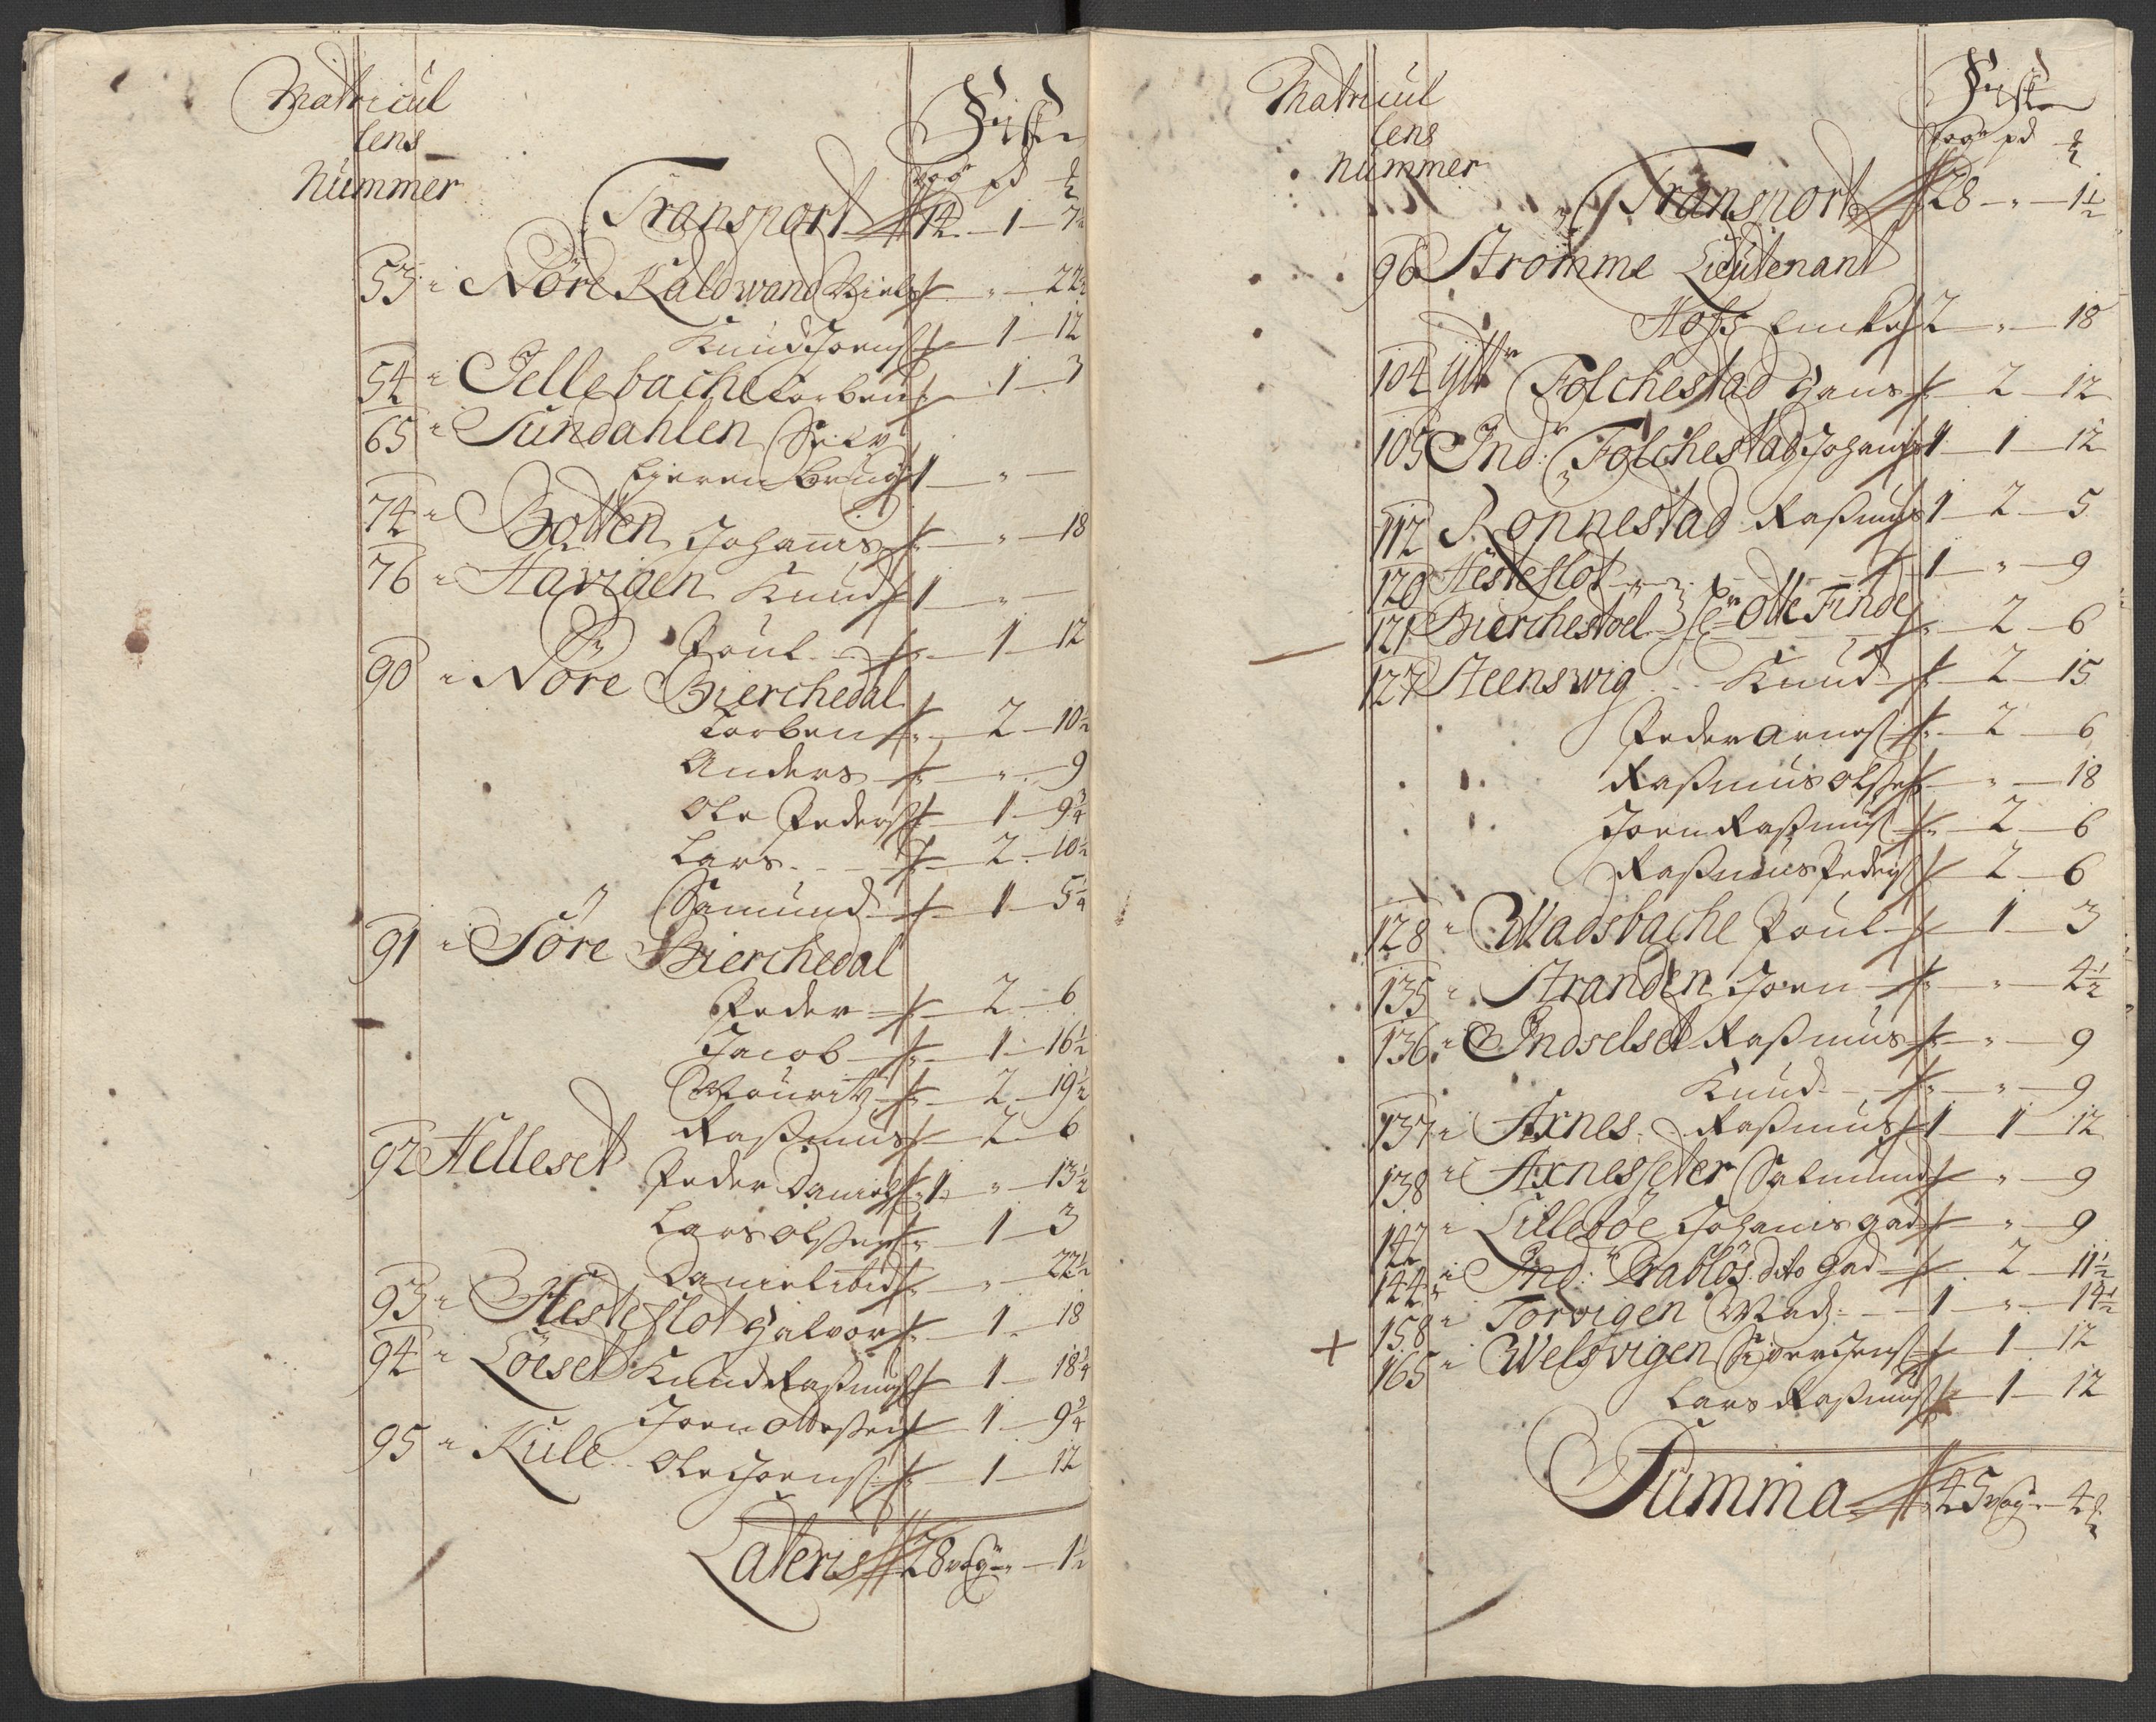 Matricul
lens
Nummer
Fiske
wog pd
Transport 14 1 7
53 Nöre Kaldwand Niels " 22½
Knud Joens 1 12
54 Jellebache Torben 1 3
65 Sundahlen
1 "
74 Botten Johannis " 18
76 Havigen Knud 1 "
Poul 1 12
90 Nore Bierchedal
Torben 2 10½
Anders " 9
Ole Peders 1 9¾
Lars 2 10½
Samund 1 5¼
91 Söre Bierchedal
Peder 2 6
Jacob 1 16½
Mouritz 2 19½
92 Helleset Rasmus 2 6
Peder Daniels 1 " 13½
Lars Olsen 1 3
Daniel ibid " 22½
93 Hesteflot Halvor 1 18
94 Löeset Knud Rasmus 1 18¼
Joen Ottesen 1 9¾
95 Kule Ole Joens 1 12
Lateris 28 wog " 1½
Matricul
lens
nummer
Fiske
wog pd
Transport 28 " 1½
96 Stromme Lieutenant
Hoss 2 " 18
104 Ytt Folchestad Hans 2 12
105 Ind: Folchestad Johans 1 1 12
112 Rönnestad Rasmus 1 2 5
120 Hesteflot 1 " 9
121 Bierchestoel Otte Finde 2 6
127 Steenswig Knud 2 15
Peder Arnes 2 6
Rasmus Olsen " 18
Joen Rasmus 2 6
Rasmus Peders 2 6
128 Wadsbache Poul 1 3
135 Stranden Joen " 4½
136 Indselset Rasmus " 9
Knud " 9
137 Axnes Rasmus 1 1 12
138 Axnesseter Salmund " 9
142 Lillebøe Johanis gad " 9
144 Ind: Drabløs dito Gad 2 11½
158 Torvigen Mads 1 " 14½
165 Welsvigen Siver Jens 1 12
Lars Rasmus 1 12
Summa 45 wog " 4½